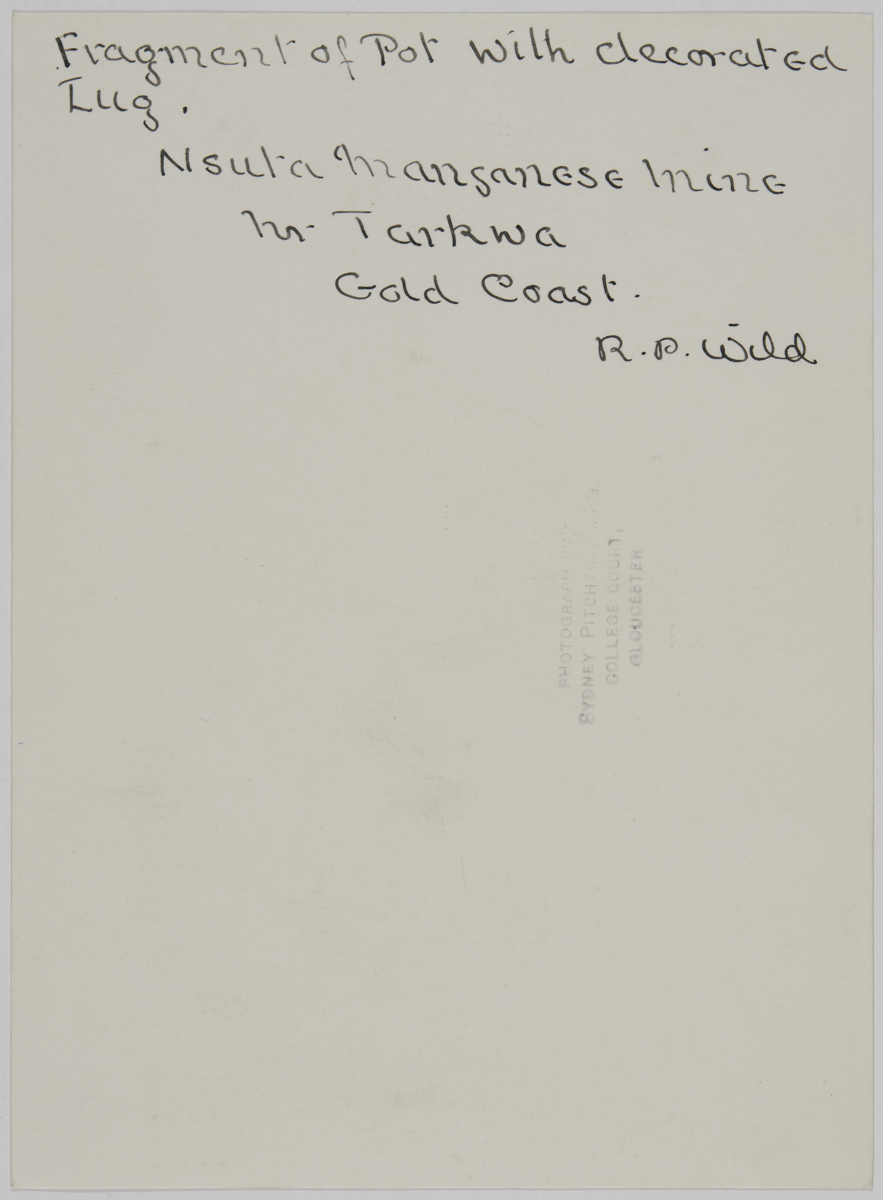 Fragment of Pot with decorated
Lug.
Nsuta Manganese Mine
Nr Tarkwa
Gold Coast.
R.P. Wild
PHOTOGRAPH
SYDNEY
COLLEGE COURT,
GLOUCESTER